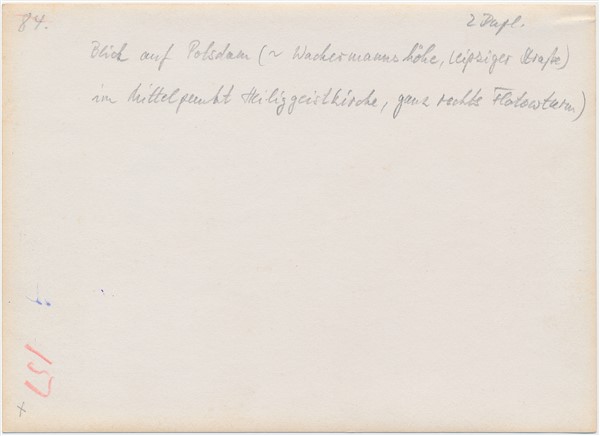 84.
2 Dupl.
Blick auf Potsdam (~ Wackermanns höhe, Leipziger Straße)
im Mittelpunkt Heiliggeistkirche, ganz rechts Flatowturm)
157
+